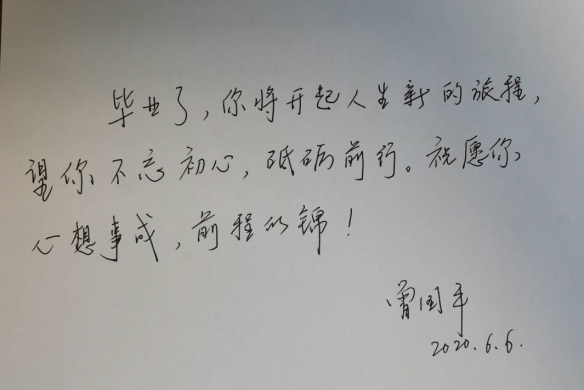 毕业了，你将开起人生新的旅程，
望你不忘初心，砥砺前行。祝愿你
心想事成，前程似锦！
曾国平
2020.6.6.